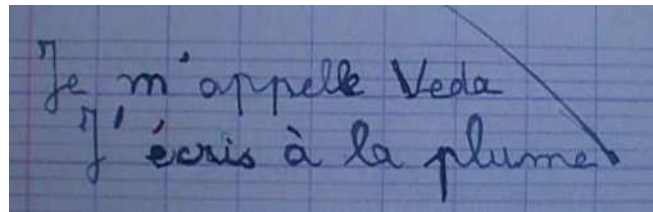 Je m'appelle Veda
J'écris à la plume